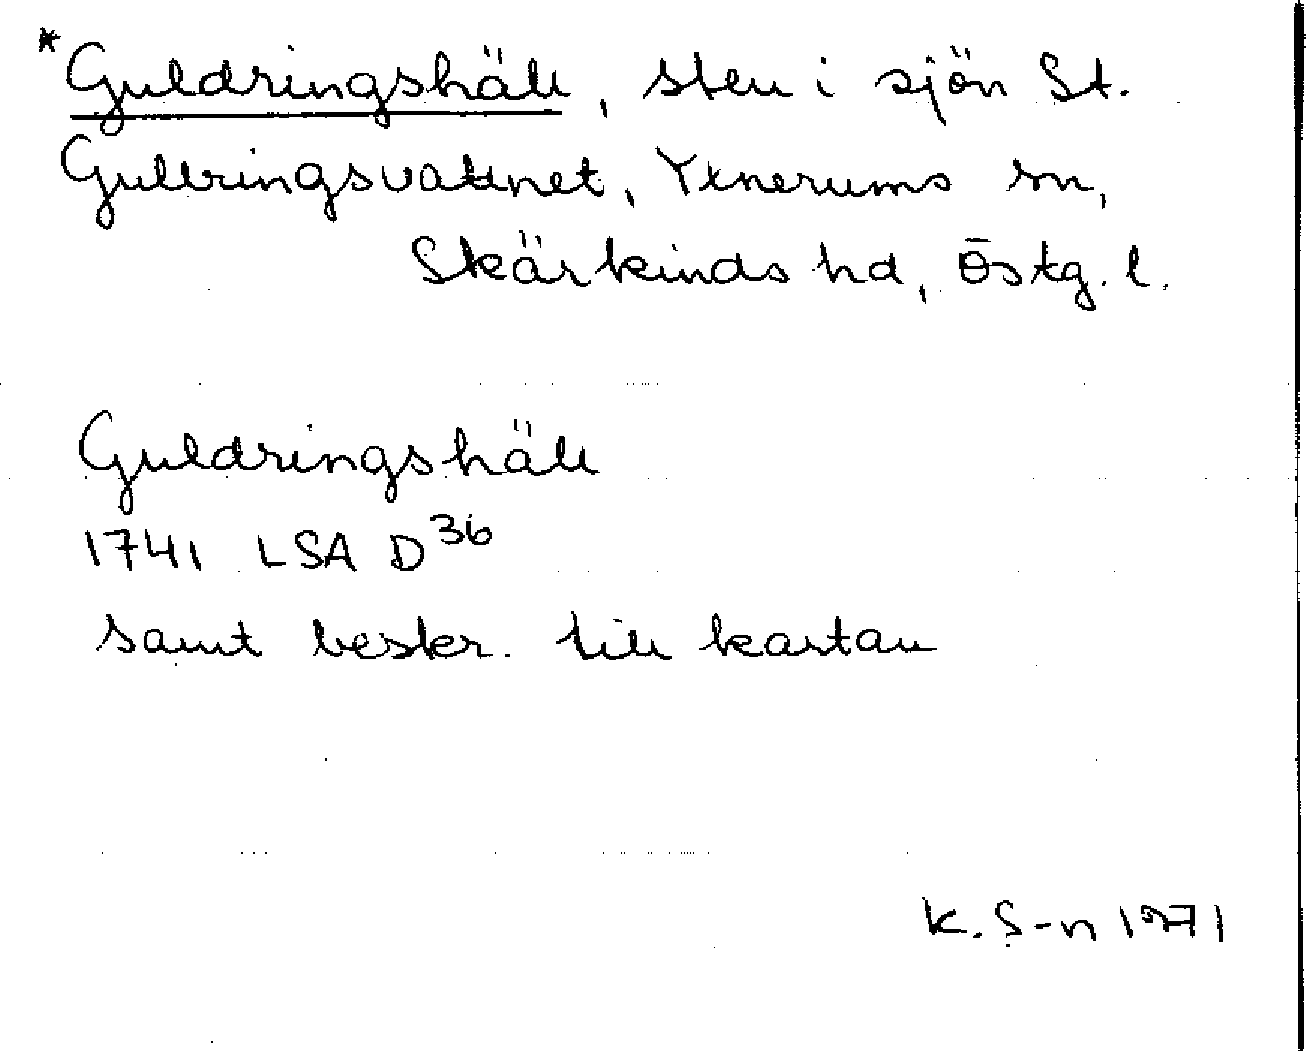 *Guldringshäll, sten i sjön St.
Gullringsvattnet, Yxnerums sn,
Skärkinds hd, Östg. l.
Guldringshäll
1741 LSA D 36
samt beskr. till kartan
K. S-n 1971